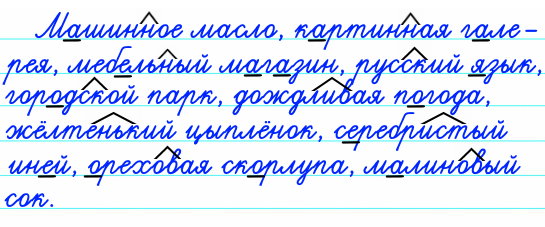 Машинное масло, картинная гале-
рея, мебельный магазин, русский язык,
городской парк, дождливая погода,
жёлтенький цыплёнок, серебристый
иней, ореховая скорлупа, малиновый
сок.